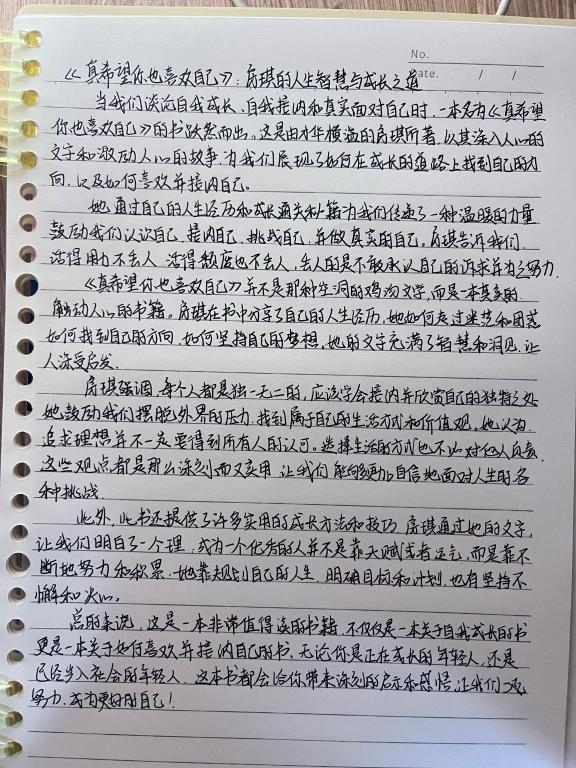 No.
《真希望你也喜欢自己》：房琪的人生智慧与成长之道
Date. / /
当我们谈论自我成长、自我接纳和真实面对自己时，一本名为《真希望
你也喜欢自己》的书跃然而出。这是由才华横溢的房琪所著，以其深入人心的
文字和激励人心的故事，为我们展现了如何在成长的道路上找到自己的方
向，以及如何喜欢并接纳自己。
她通过自己的人生经历和成长通关秘籍为我们传递了一种温暖的力量
鼓励我们认识自己、接纳自己、挑战自己，并做真实的自己，房琪告诉我们，
活得用力不丢人，活得颓废也不丢人，丢人的是不敢承认自己的诉求并为之努力.
《真希望你也喜欢自己》并不是那种空洞的鸡汤文学,而是一本真实的
触动人心的书籍。房琪在书中分享了自己的人生经历，她如何走过迷茫和困惑
如何找到自己的方向，如何坚持自己的梦想，她的文字充满了智慧和洞见，让
人深受启发.
房琪强调，每个人都是独一无二的，应该学会接纳并欣赏自己的独特之处
她鼓励我们摆脱外界的压力，找到属于自己的生活方式和价值观。她认为
追求理想并不一定要得到所有人的认可。选择生活的方式也不必对他人负责.
这些观点都是那么深刻而又实用，让我们能够更加自信地面对人生的各
种挑战.
此外，此书还提供了许多实用的成长方法和技巧，房琪通过她的文字，
让我们明白了一个理，成为一个优秀的人并不是靠天赋或者运气，而是靠不
断地努力和积累.她靠规划自己的人生，明确目标和计划，也有坚持不
懈和决心.
总的来说，这是一本非常值得读的书籍，不仅仅是一本关于自我成长的书
更是一本关于如何喜欢并接纳自己的书，无论你是正在成长的年轻人，还是
已经步入社会的年轻人，这本书都会给你带来深刻的启示和感悟，让我们一起
努力，成为更好的自己！